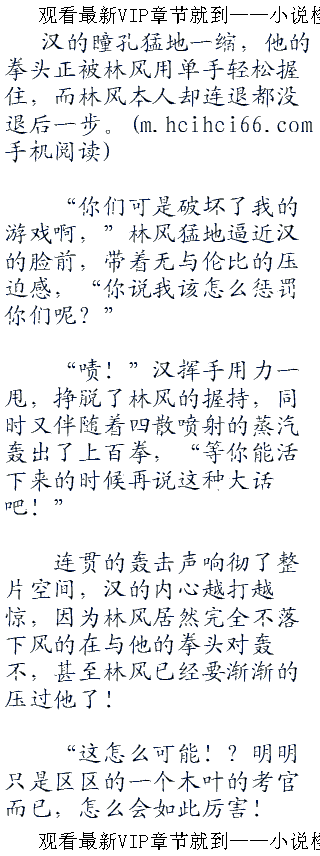 观看最新VIP章节就到——小说
汉的瞳孔猛地一缩，他的
拳头正被林风用单手轻松握
住，而林风本人却连退都没
退后一步。(m.hcihci66.com
手机阅读)
“你们可是破坏了我的
游戏啊，”林风猛地逼近汉
的脸前，带着无与伦比的压
迫感，“你说我该怎么惩罚
你们呢？”
“啧！”汉挥手用力一
甩，挣脱了林风的握持，同
时又伴随着四散喷射的蒸汽
轰出了上百拳，“等你能活
下来的时候再说这种大话
吧！”
连贯的轰击声响彻了整
片空间，汉的内心越打越
惊，因为林风居然完全不落
下风的在与他的拳头对轰
不，甚至林风已经要渐渐的
压过他了！
“这怎么可能！？明明
只是区区的一个木叶的考官
而已，怎么会如此厉害！
观看最新VIP章节就到——小说